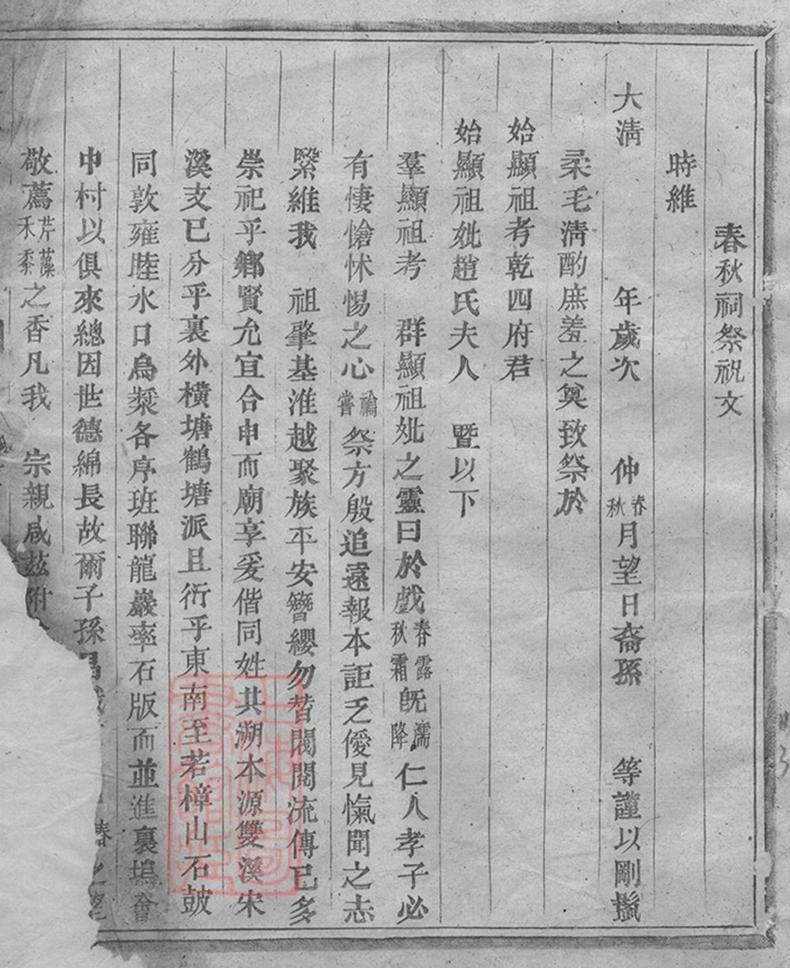 春秋祠祭祝文
時維
大淸 年歲次 仲春秋月望日裔孫 等謹以剛鬣
柔毛淸酌庶羞之奠致祭於
始顯祖考乾四府君
始顯祖妣趙氏夫人 曁以下
羣顯祖考 群顯祖妣之靈曰於戲春露秋霜旣濡降仁人孝子必
有悽愴怵惕之心禴嘗祭方殷追遠報本詎乏僾見愾聞之志
緊維我 祖肇基淮越聚族平安簪纓勿替閥閱流傳已多
崇祀乎鄉賢允宜合申而廟享爰偕同姓共溯本源雙溪宋
溪支已分乎裏外橫塘鶴塘派且衍乎東南至若樟山石皷
同敦雍睦水口烏漿各序班聯龍巖率石版而並進裏塢會
中村以俱來總因世德綿長故爾子孫
敬薦芹藻禾黍之香凡我 宗親咸茲附
春